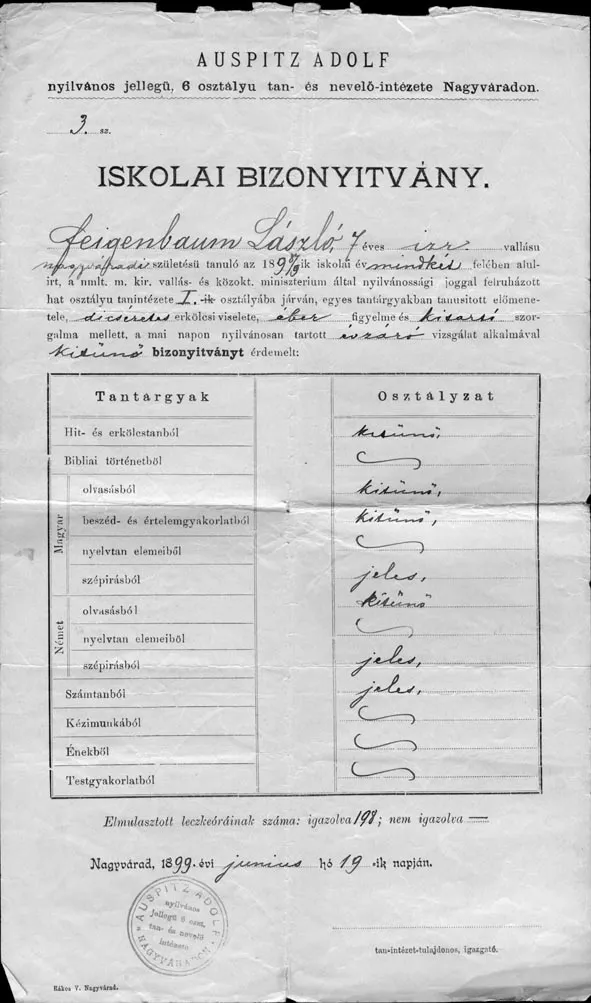 AUSPITZ ADOLF
nyilvános jellegü, 6 osztályu tan- és nevelő-intézete Nagyváradon.
3. sz.
ISKOLAI BIZONYITVÁNY.
Feigenbaum László, 7 éves izr. vallásu
nagyváradi születésü tanuló az 1898/9 ik iskolai év mindkét felében alul-
irt, a nmlt. m. kir. vallás- és közokt. miniszterium által nyilvánossági joggal felruházott
hat osztályu tanintézete I. -ik osztályába járván, egyes tantárgyakban tanusitott előmene-
tele, dicséretes erkölcsi viselete, éber figyelme és kitartó szor-
galma mellett, a mai napon nyilvánosan tartott évzáró vizsgálat alkalmával
kitünő bizonyitványt érdemelt:
Tantárgyak Osztályzat
Hit- és erkölcstanból kitünő,
Bibliai történetből
Magyar
olvasásból kitünő,
beszéd- és értelemgyakorlatból kitünő,
nyelvtan elemeiből
szépirásból jeles,
Német
olvasásból kitünő
nyelvtan elemeiből
szépirásból jeles,
Számtanból jeles,
Kézimunkából
Énekből
Testgyakorlatból
Elmulasztott leczkeóráinak száma: igazolva 198; nem igazolva —
Nagyvárad, 1899. évi junius hó 19 -ik napján.
AUSPITZ ADOLF
nyilvános
jellegü 6 oszt.
tan- és nevelő
intézete
NAGYVÁRADON
tan-intézet-tulajdonos, igazgató.
Rákos V. Nagyvárad.